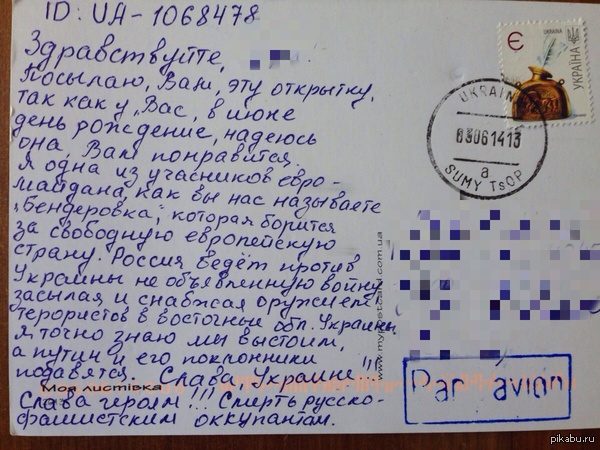 ID: UA-1068478
Здравствуйте,
Посылаю, Вам, эту открытку,
так как у, Вас, в июне
день рождение, надеюсь
она, Вам понравится.
Я одна из учасников евро-
майдана, как вы нас называете
"Бендеровка", которая борится
за свободную европейскую
страну. Россия ведёт против
Украины не объявленную войну
засылая и снабжая оружием
терористов в восточные обл. Украины
я точно знаю мы выстоим,
а путин и его поклонники
подавятся. Слава Украине!!!
Слава героям!!! Смерть русско-
фашистским оккупантам.
Моя листівка
www.mypostcard.com.ua
Є
UKRAINA
УКРАЇНА
UKRAINE
03061413
а
SUMY TsOP
Par avion
pikabu.ru